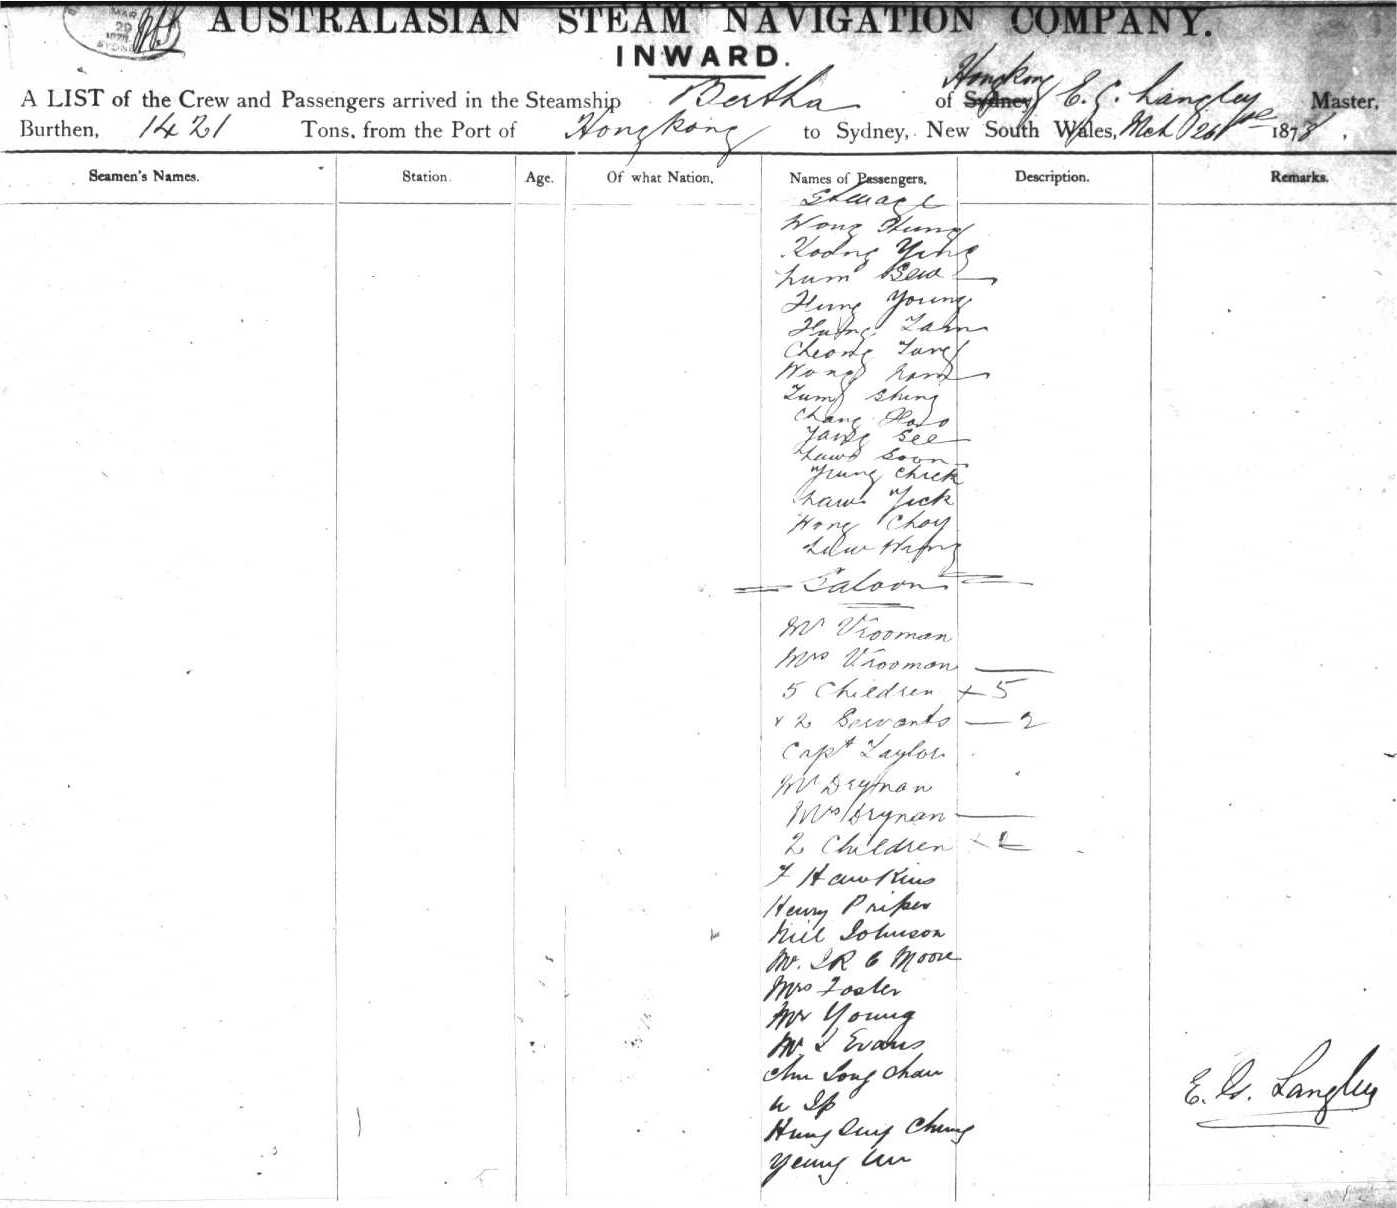 MAR
SYDNEY
AUSTRALASIAN STEAM NAVIGATION COMPANY.
INWARD.
A LIST of the Crew and Passengers arrived in the Steamship Bertha of Sydney Hongkong E. G. Langley Master,
Burthen, 1421 Tons, from the Port of Hongkong to Sydney, New South Wales, Mch 26 1878,
Seamen's Names. Station. Age. Of what Nation. Names of Passengers. Description. Remarks.
Steerage
Wong Hung
Koong Ying
Lum Bew
Hung Young
Hung Lam
Cheong Tung
Wong
Shing
Chang
Yang See
Soon
Yung Chick
Yick
Wong Choy
Wing
Saloon
Mr Vrooman
Mrs Vrooman
5 Children + 5
+ 2 Servants — 2
Capt Taylor
Mr Drynan
Mrs Drynan
2 Children
F Hawkins
Henry
Neil Johnson
Mr. J R C Moore
Mrs Foster
Mr Young
Mr J Evans
Chu Long Chau
Ip
Hung Chung
Yeung
E. G. Langley